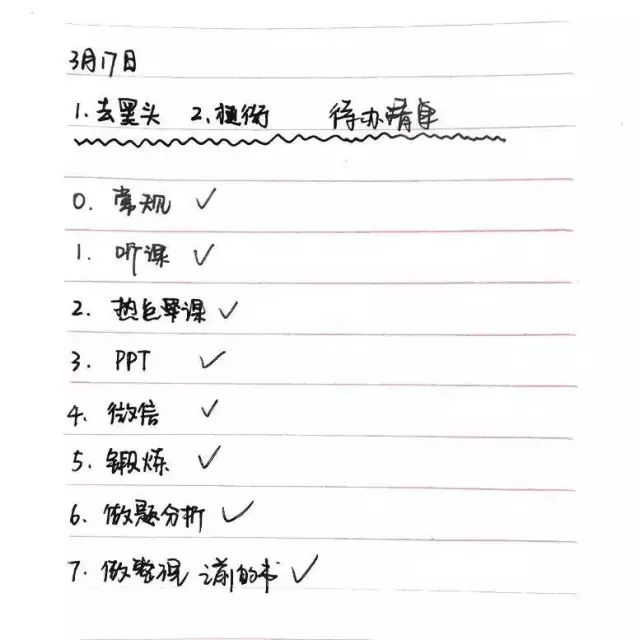 3月17日
1.去罢头 2. 待办清单
0. 常规 ✓
1. 听课 ✓
2. 课 ✓
3. PPT ✓
4. 微信 ✓
5. 锻炼 ✓
6. 做题分析 ✓
7. 做整理 之前的书 ✓